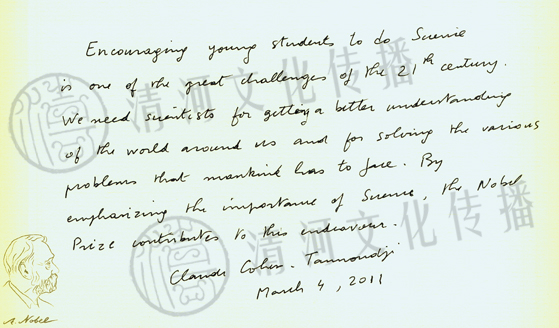 Encouraging young students to do Science
is one of the great challenges of the 21th century.
We need scientists for getting a better understanding
of the world around us and for solving the various
problems that mankind has to face. By
emphasizing the importance of Science, the Nobel
Prize contributes to this endeavour.
Claude Cohen-Tannoudji
March 4, 2011
A. Nobel
清河文化传播
清河文化传播